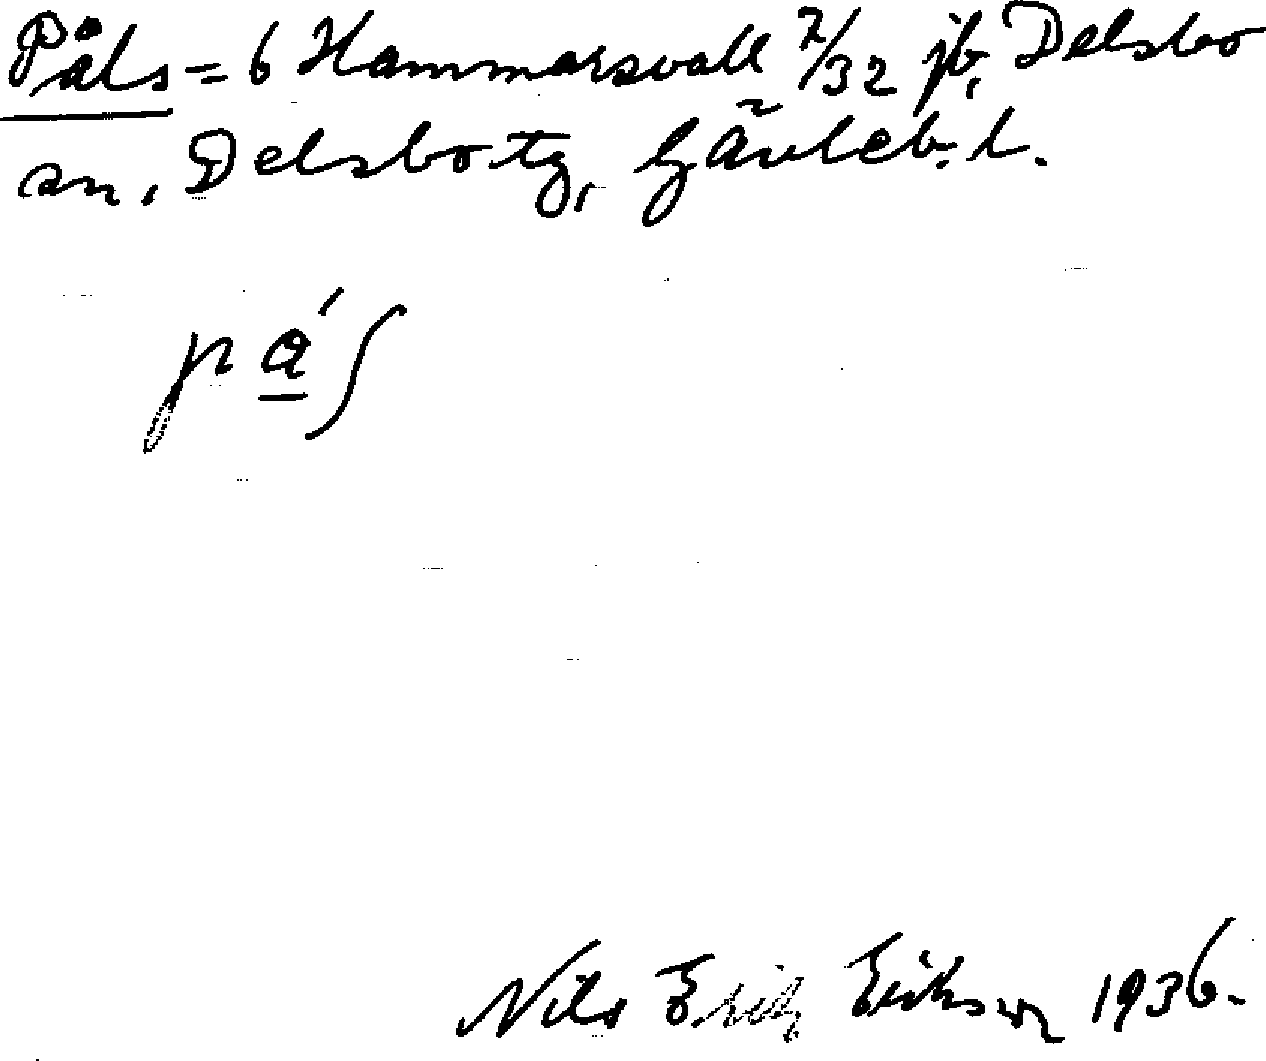 Påls = 6 Hammarsvall 7/32 jb, Delsbo
sn, Delsbo tg, Gävleb. l.
pa̲´ʃ
Nils Erik Eriksson 1936.